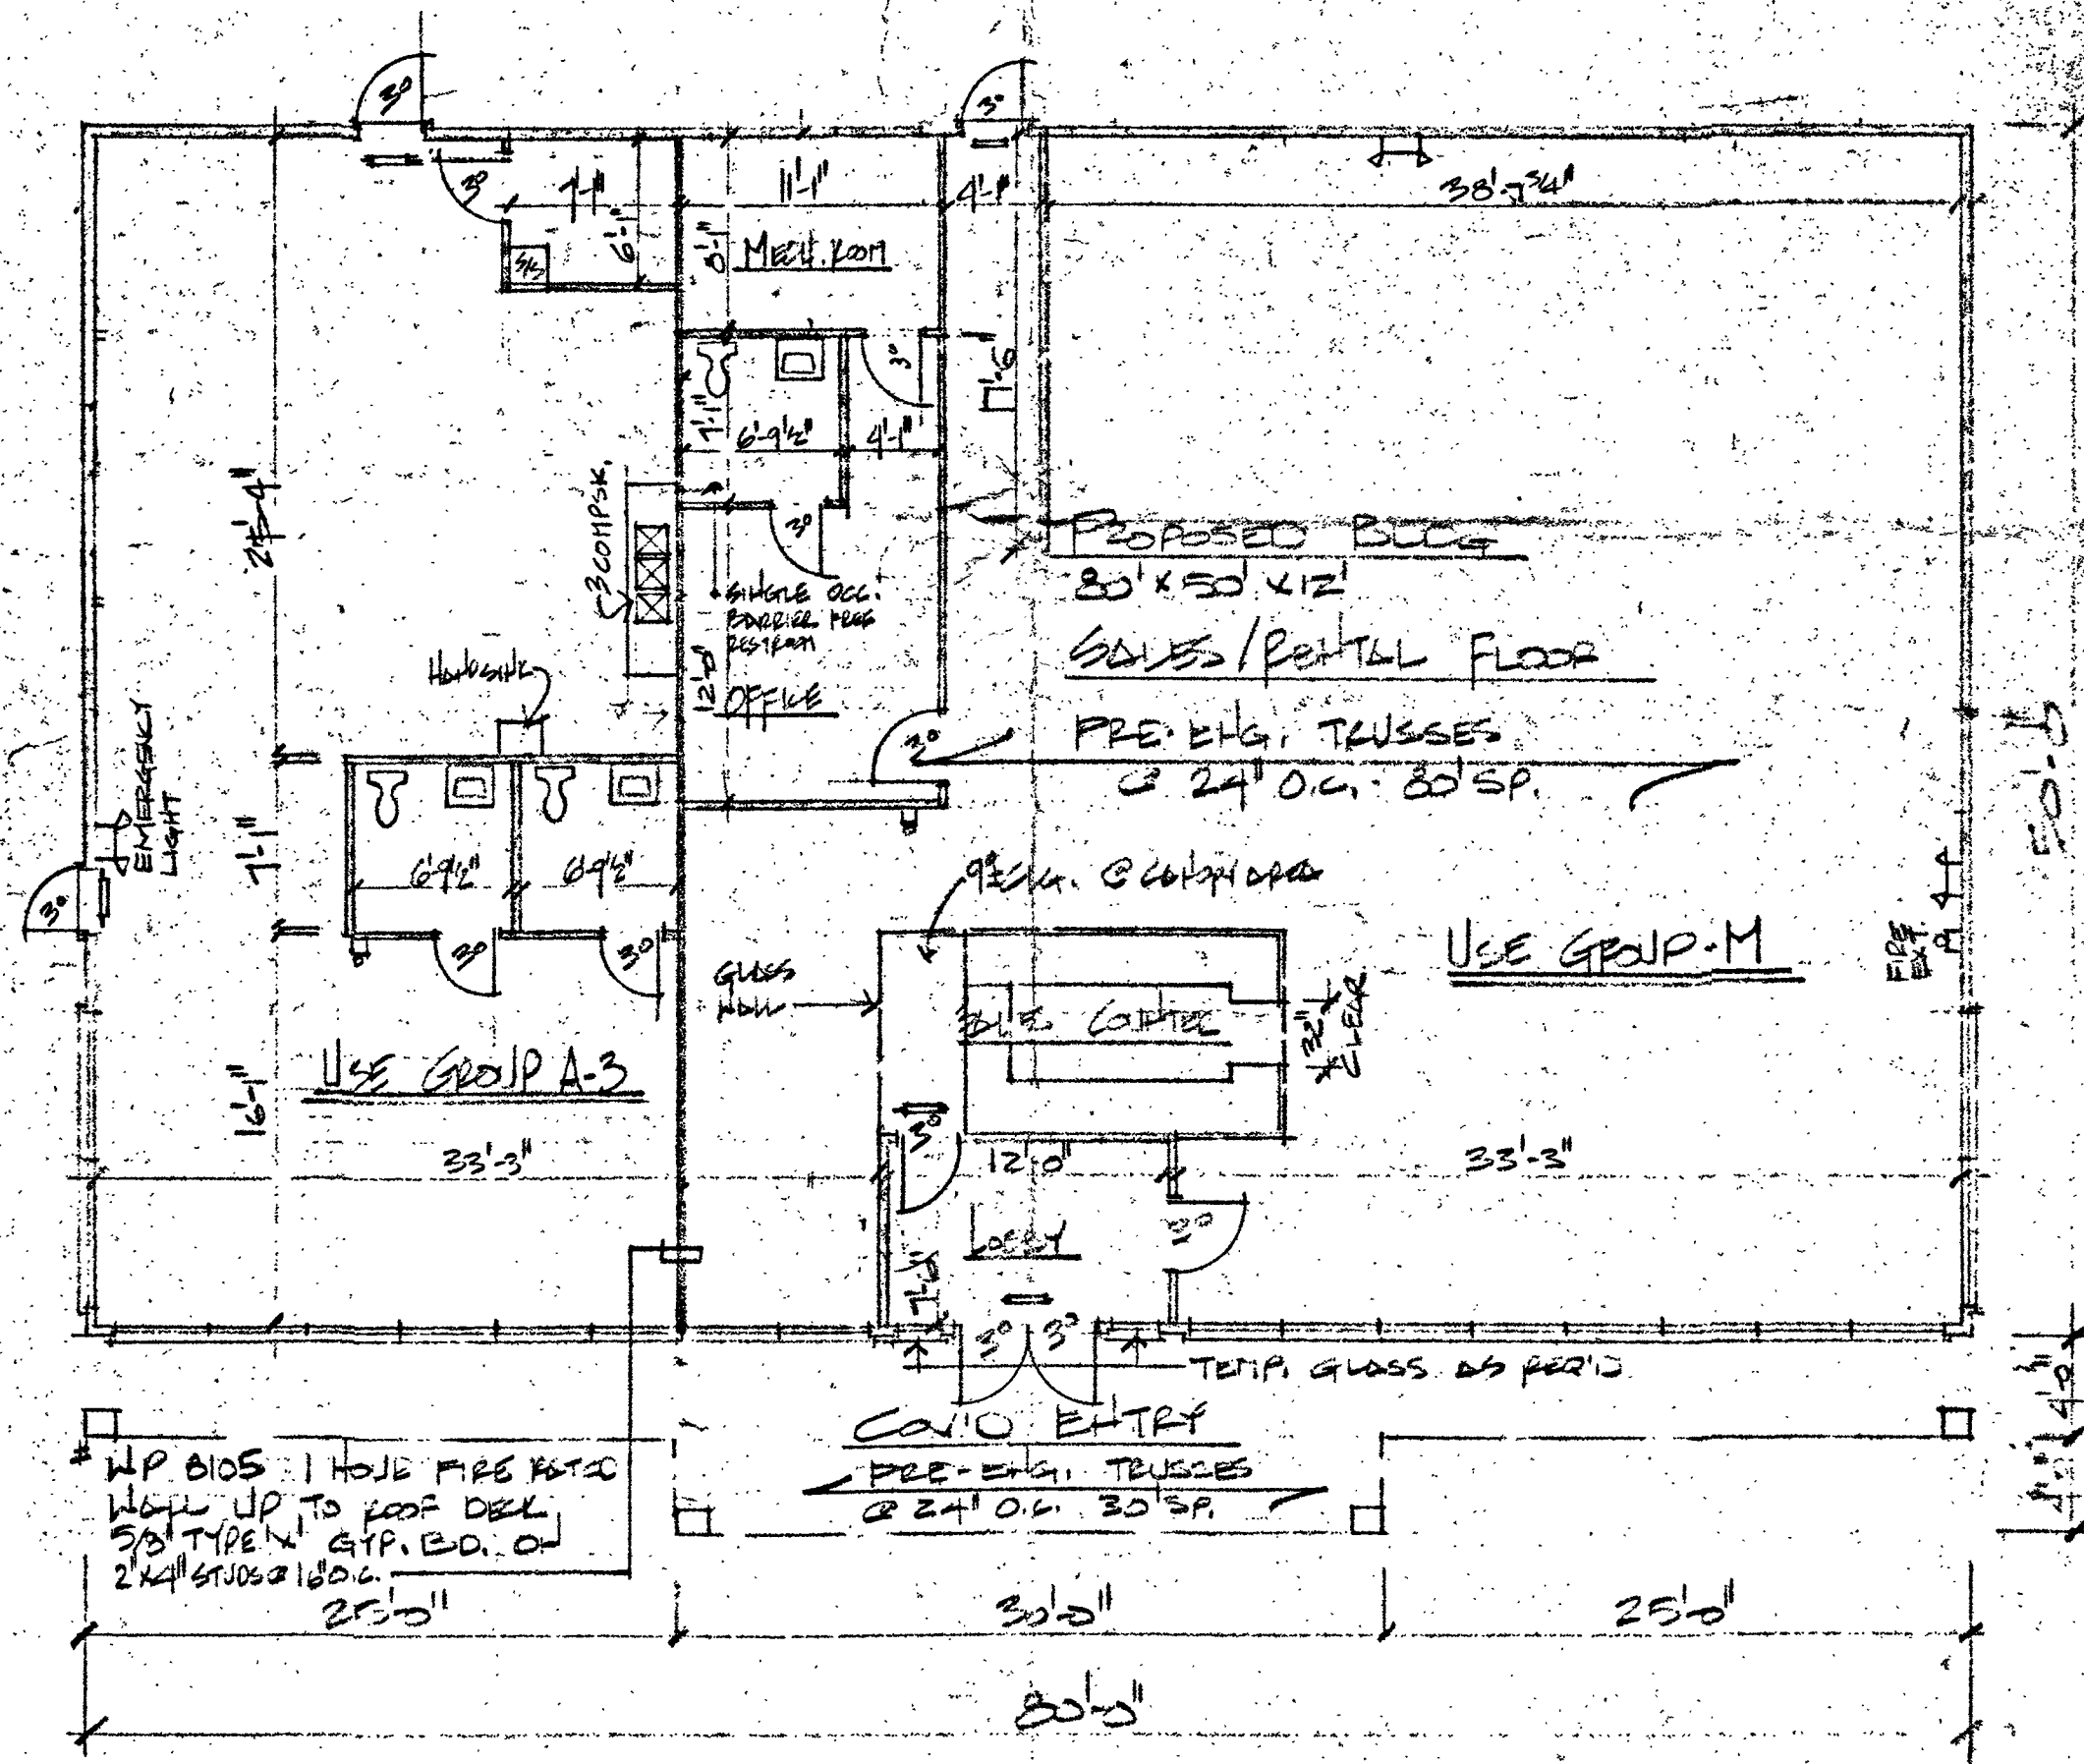 3⁰
3⁰
3⁰
7'-1"
11'-1"
4'-1"
38'-7 3/4"
6'-1"
8'-1"
MECH. ROOM
S/S
3⁰
7'-1"
6'-9½"
4'-1"
3 COMP SK.
3⁰
SINGLE OCC.
BARRIER FREE
RESTROOM
12'-0"
OFFICE
HANDSINK
3⁰
PROPOSED BLDG
80' X 50' X 12'
SALES/RENTAL FLOOR
PRE-ENG. TRUSSES
@ 24" O.C. - 80' SP.
50'-0"
EMERGENCY
LIGHT
3⁰
7'-1"
6'-9½"
6'-9½"
3⁰
3⁰
CLG. @ CANOPY AREA
GLASS
WALL
SALES COUNTER
32"
CLEAR
USE GROUP-M
FIRE
EXT.
USE GROUP A-3
16'-1"
33'-3"
3⁰
12'-0"
33'-3"
LOBBY
3⁰
3⁰
3⁰
TEMP. GLASS AS REQ'D
COV'D ENTRY
PRE-ENG. TRUSSES
@ 24" O.C. 30' SP.
4'-0"
WP 8105 1 HOUR FIRE RATED
WALL UP TO ROOF DECK
5/8" TYPE 'X' GYP. BD. ON
2"X4" STUDS @ 16" O.C.
25'-0"
30'-0"
25'-0"
80'-0"